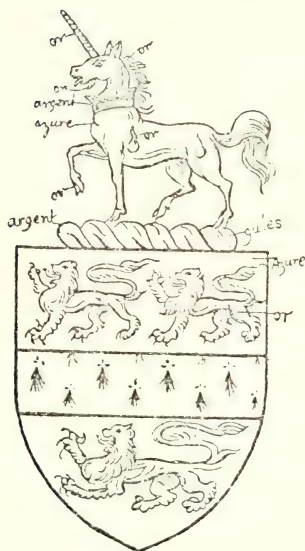 or
or
or
argent
azure
or
or
argent
gules
azure
or